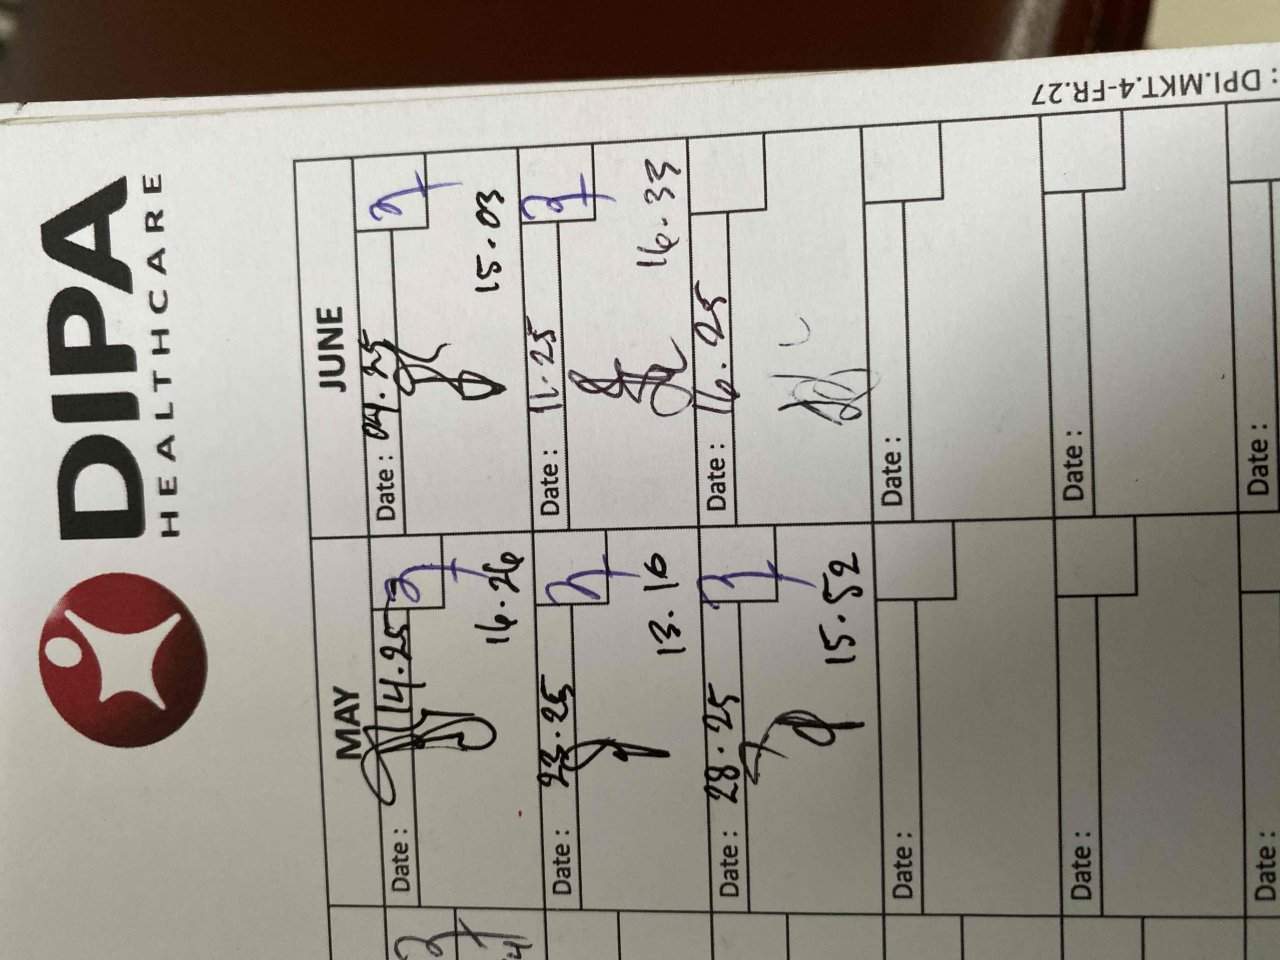 DIPA
HEALTHCARE
: DPI.MKT.4-FR.27
MAY
JUNE
Date : 14.25
16.26
Date : 04.25
15.03
Date : 23.25
13.16
Date : 11.25
16.33
Date : 28.25
15.52
Date : 16.25
Date :
Date :
Date :
Date :
Date :
Date :